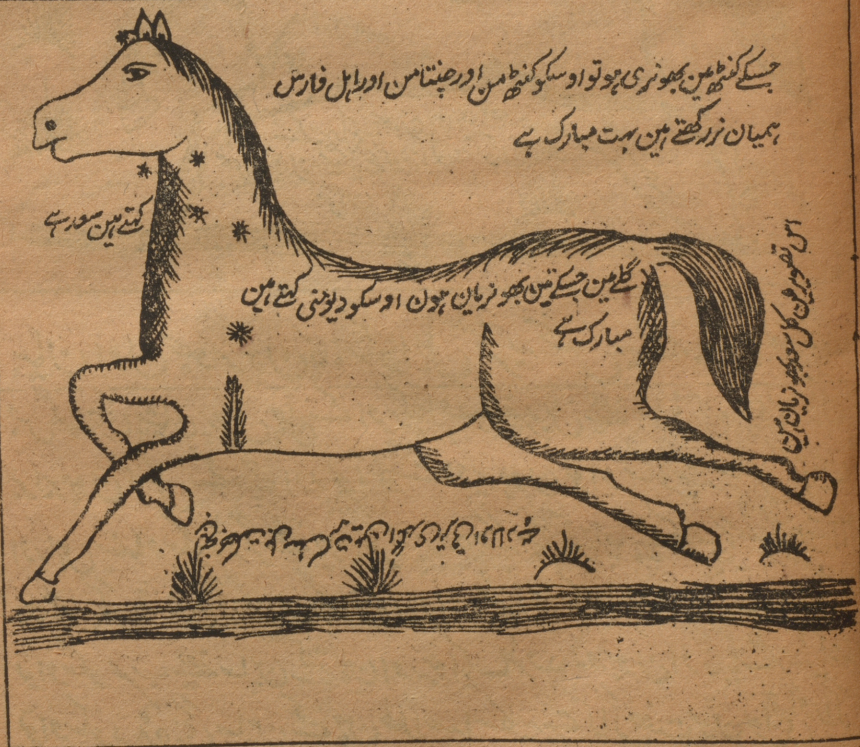 جسکے کنٹھ مین بھونری ہو تو اوسکو کنٹھ من اور چنتا من اور اہل فارس
ہمیان زر رکھتے ہین بہت مبارک ہے
کہتے ہین سعد ہے
گلے مین جسکے تین بھونریان ہون اوسکو دیومنی کہتے ہین
مبارک ہے
اس تصویر مین کل سعد بھونریان ہین